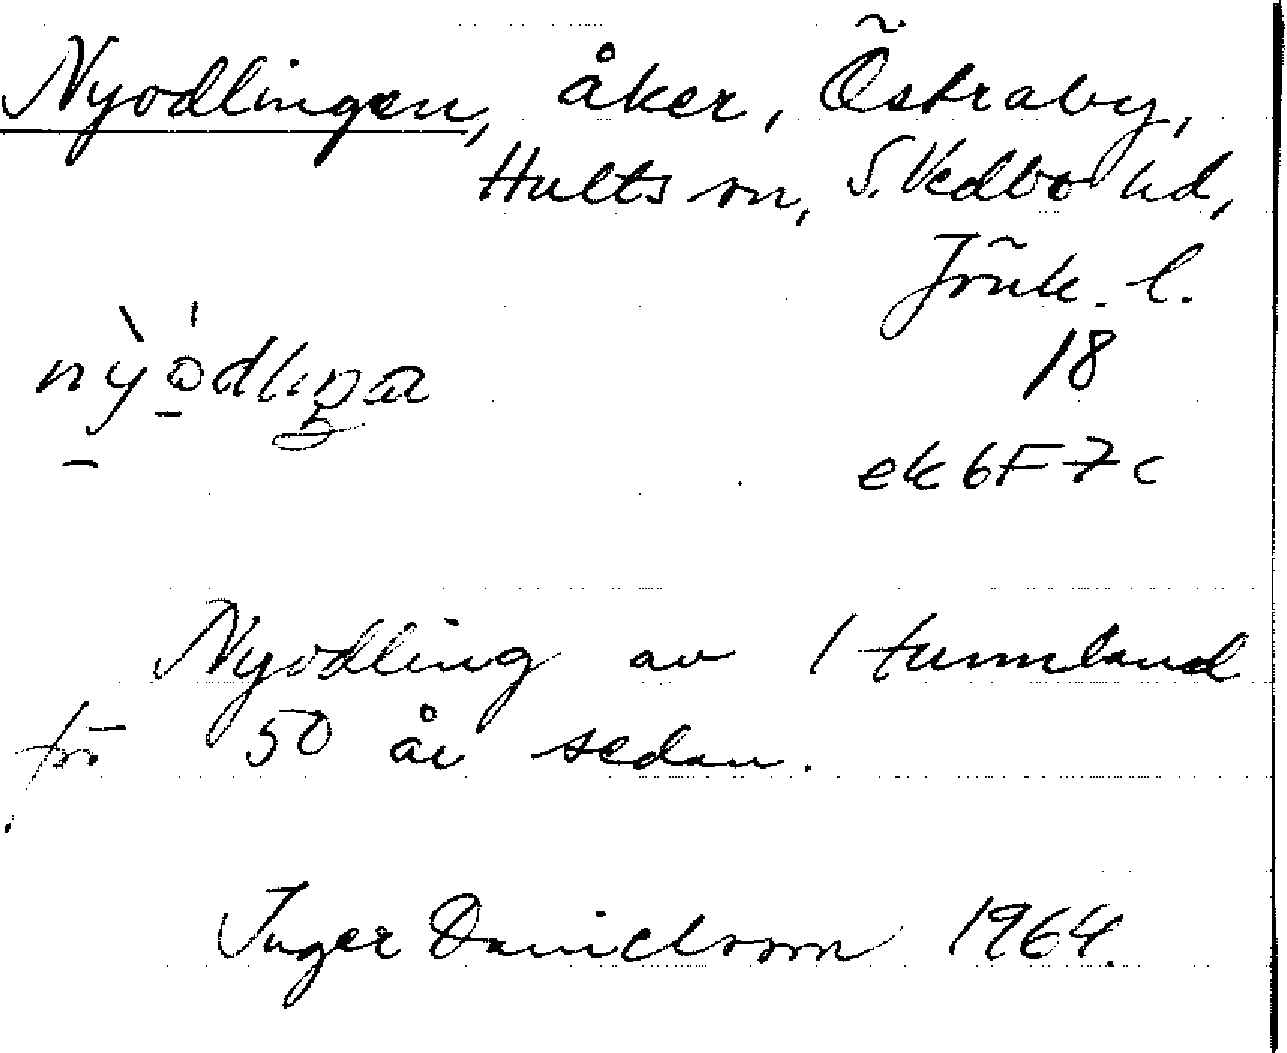 Nyodlingen, åker, Östraby,
Hults sn, S. Vedbo hd,
Jönk. l.
18
ek 6F 7c
Nyodling av 1 tunnland
för 50 år sedan.
Inger Danielsson 1964.